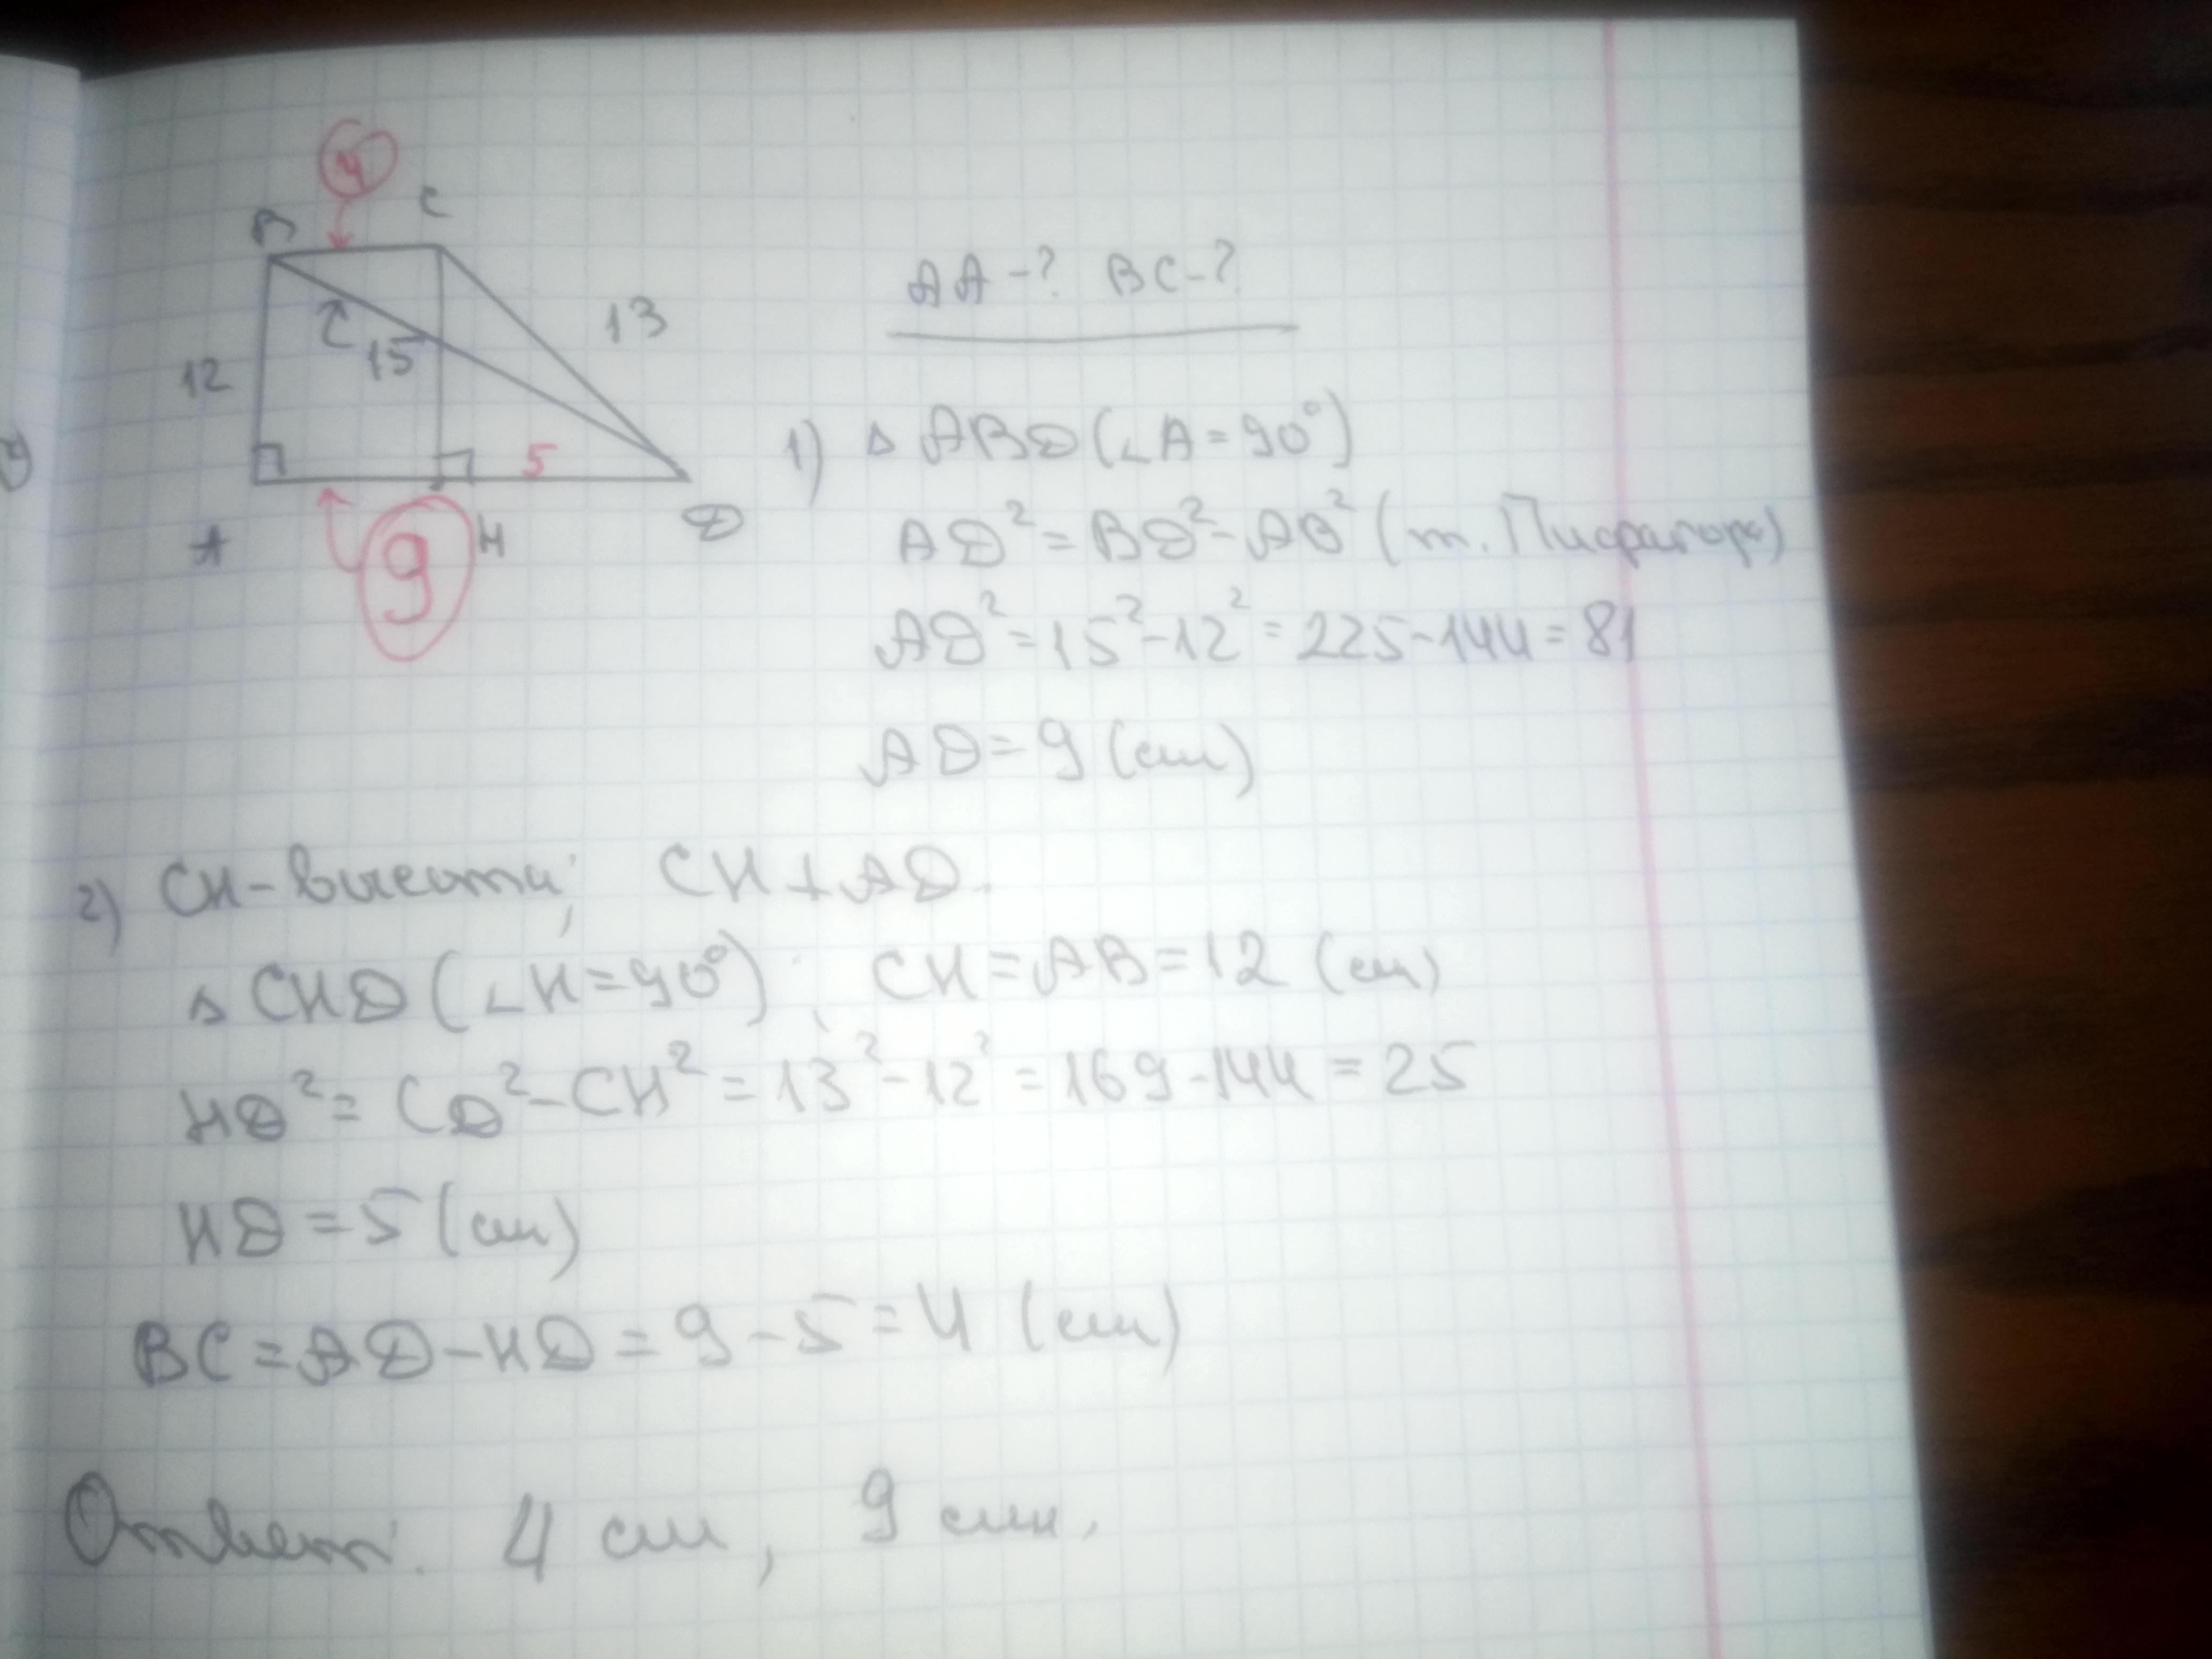 4
B C
12
15
13
5
A 9 H D
AA-? BC-?
1) △ ABD (∠A=90°)
AD²=BD²-AB² (т. Пифагора)
AD²=15²-12²=225-144=81
AD=9 (см)
2) CH-высота; CH⊥AD.
△ CHD (∠H=90°); CH=AB=12 (см)
HD²=CD²-CH²=13²-12²=169-144=25
HD=5 (см)
BC=AD-HD=9-5=4 (см)
Ответ: 4 см, 9 см.